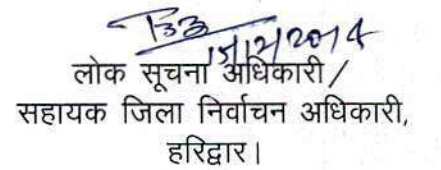 15/12/2014
लोक सूचना अधिकारी /
सहायक जिला निर्वाचन अधिकारी,
हरिद्वार।